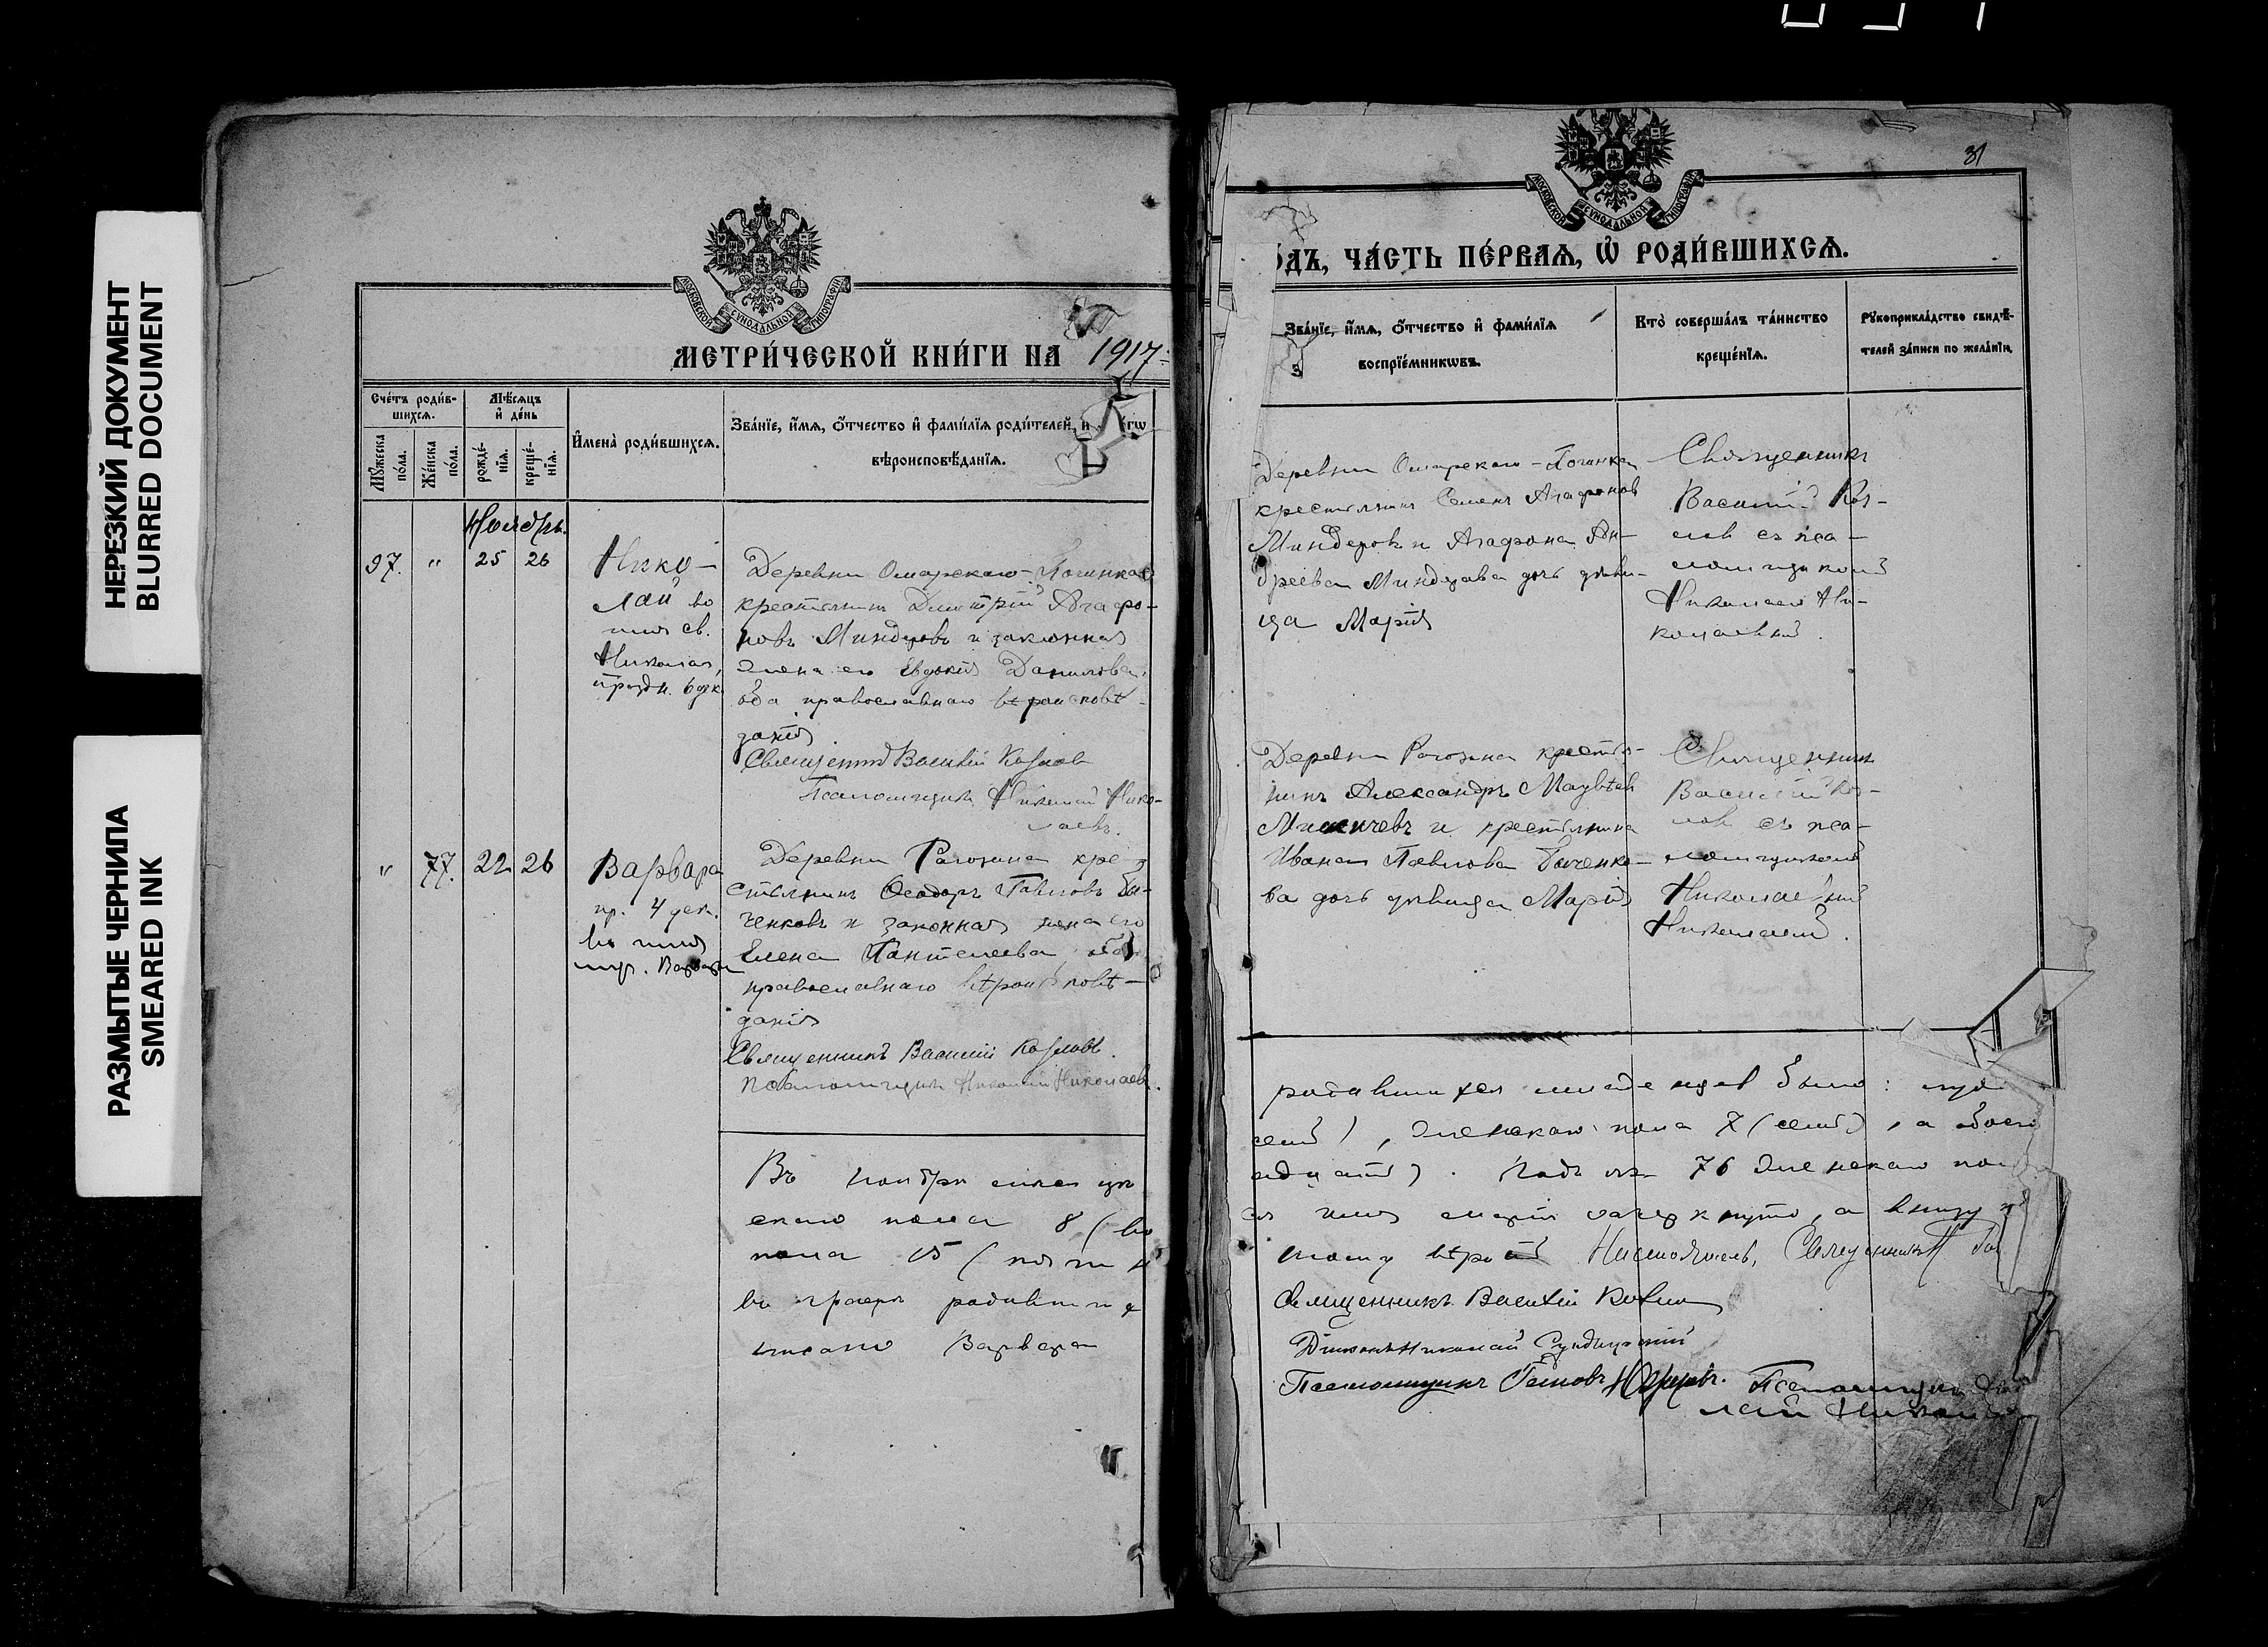 НЕРЕЗКИЙ ДОКУМЕНТ
BLURRED DOCUMENT
РАЗМЫТЫЕ ЧЕРНИЛА
SMEARED INK
МОСКОВСКОЙ СѴНОДАЛЬНОЙ ТИПОГРАФІИ
МЕТРИ́ЧЕСКОЙ КНИ́ГИ НА 1917
Сче́тъ роди́в-
шихся.
Мѣ́сяцъ
и҆ де́нь
И҆мена̀ роди́вшихся.
Зва́нїе, и҆́мя, ѻ҆́тчество и҆ фами́лїя роди́телей, и҆
вѣроисповѣ́данїя.
Мꙋ́жеска
по́ла.
Же́нска
по́ла.
рожде́-
нїя.
креще́-
нїя.
Ноябрь.
97. " 25 26
Нико-
лай во
имя св.
Николая,
праздн. 6 дек.
Деревни Омарскаго-Починка
крестьянинъ Димитрій Агафо-
новъ Миндеровъ и законная
жена его Евдокія Данилова,
оба православнаго вѣроисповѣ-
данія
Священникъ Василій Козлов
Псаломщикъ Николай Нико-
лаевъ.
" 77. 22 26
Варвара
пр. 4 дек.
въ имя
мч. Варвары
Деревни Рагозина кре-
стьянинъ Ѳеодоръ Павловъ Бы-
ченковъ и законная жена его
Елена Пантелеева, оба
православнаго вѣроисповѣ-
данія
Священникъ Василій Козловъ.
Псаломщикъ Николай Николаевъ.
Въ ноябрѣ мѣсяцѣ
скаго пола 8 (во
пола 15 (пятн
въ графѣ родивши
писано Варвара
31
МОСКОВСКОЙ СѴНОДАЛЬНОЙ ТИПОГРАФІИ
ОДЪ, ЧА́СТЬ ПЕ́РВАЯ, Ѽ РОДИ́ВШИХСЯ.
Зва́нїе, и҆́мя, ѻ҆́тчество и҆ фами́лїя
воспрїе́мникѡвъ.
Кто̀ соверша́лъ та́инство
креще́нїя.
Рꙋкоприкла́дство свидѣ́-
телей за́писи по жела́нїю.
Деревни Омарскаго-Починка
крестьянинъ Семенъ Агафонов
Миндеровъ и Агафона Ан-
дреева Миндерова дочь дѣви-
ца Марія
Священникъ
Василій Коз-
лов съ пса-
ломщикомъ
Николаемъ Ни-
колаевым.
Деревни Рагозина крестья-
нинъ Александръ Матвѣев
и крестьянина
Ивана Павлова Быченко-
ва дочь дѣвица Марія
Священник
Василій Коз-
лов съ пса-
ломщикомъ
Николаевым
Николаем.
родившихся младенцев было: муж
семь), женскаго пола 7 (семь), а обоего
надцать). Подъ № 76 женскаго по
имя Марія зачеркнуто, а внизу
тому вѣрить Настоятель, Священникъ
Священникъ Василій Козлов
Діаконъ Николай
Псаломщикъ
Псаломщикъ Нико
лай Никола